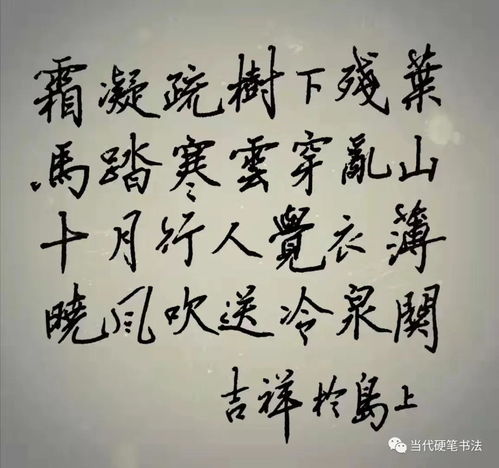 霜凝疏樹下殘葉
馬踏寒雲穿亂山
十月行人覺衣薄
曉風吹送冷泉関
吉祥於島上
当代硬笔书法